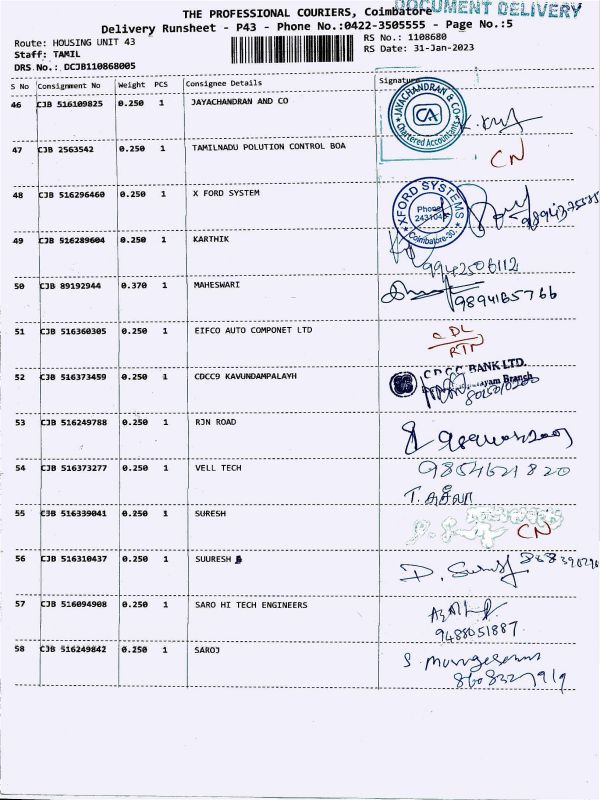 DOCUMENT DELIVERY
THE PROFESSIONAL COURIERS, Coimbatore
Delivery Runsheet - P43 - Phone No.:0422-3505555 - Page No.:5
Route: HOUSING UNIT 43
RS No.: 1108680
Staff: TAMIL
RS Date: 31-Jan-2023
DRS No.: DCJB110868005
S No Consignment No Weight PCS Consignee Details Signature
46 CJB 516109825 0.250 1 JAYACHANDRAN AND CO
JAYACHANDRAN & CO
CA
Chartered Accountants
47 CJB 2563542 0.250 1 TAMILNADU POLUTION CONTROL BOA CN
48 CJB 516296460 0.250 1 X FORD SYSTEM
XFORD SYSTEMS
Phone
Coimbatore-30.
49 CJB 516289604 0.250 1 KARTHIK
9942506112
50 CJB 89192944 0.370 1 MAHESWARI
9894165766
51 CJB 516360305 0.250 1 EIFCO AUTO COMPONET LTD
CDL
RTN
52 CJB 516373459 0.250 1 CDCC9 KAVUNDAMPALAYH
BANK LTD.
Branch
53 CJB 516249788 0.250 1 RJN ROAD
54 CJB 516373277 0.250 1 VELL TECH
9854621820
55 CJB 516339041 0.250 1 SURESH CN
56 CJB 516310437 0.250 1 SUURESH
57 CJB 516094908 0.250 1 SARO HI TECH ENGINEERS
9488051887
58 CJB 516249842 0.250 1 SAROJ
S. Murugesan